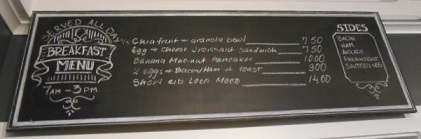 SERVED ALL DAY
BREAKFAST
MENU
7AM - 3PM
Chia fruit + granola bowl 7.50
Egg + Cheese Croissant Sandwich 7.50
Banana Mac-nut Pancakes 10.00
2 eggs + Bacon/Ham + toast 9.00
Short Rib Loco Moco 14.00
SIDES
BACON
HAM
AVOCADO